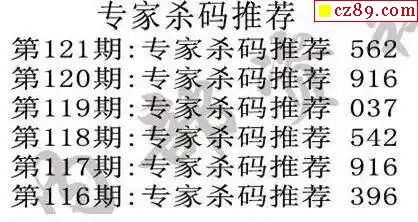 专家杀码推荐
cz89.com
第121期:专家杀码推荐 562
第120期:专家杀码推荐 916
第119期:专家杀码推荐 037
第118期:专家杀码推荐 542
第117期:专家杀码推荐 916
第116期:专家杀码推荐 396